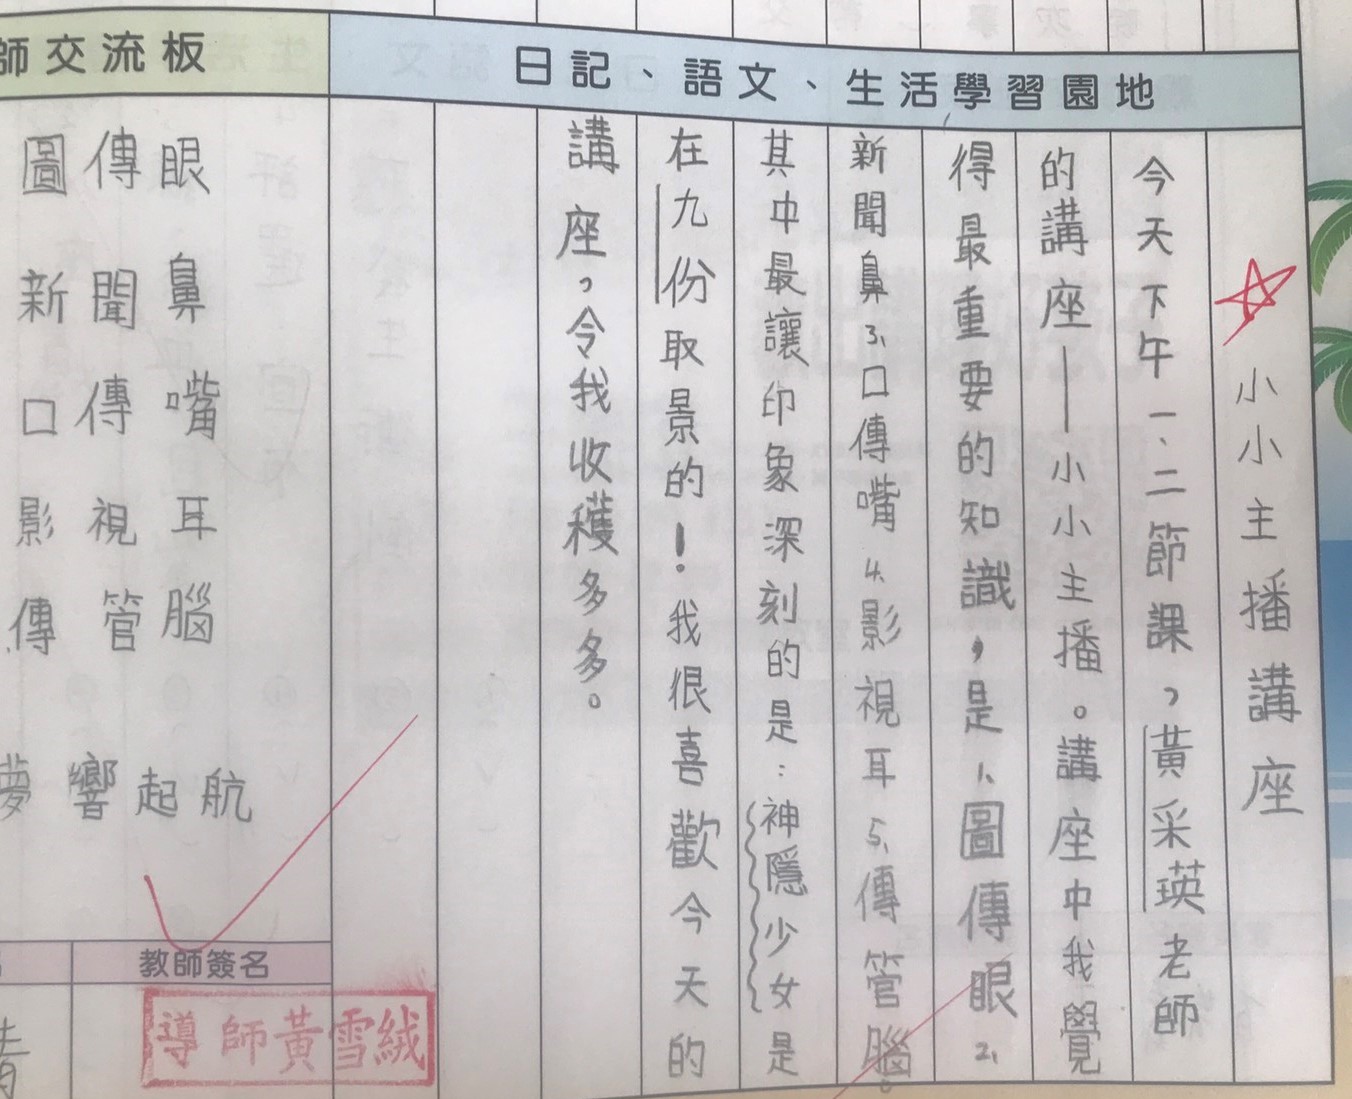 日記、語文、生活學習園地
小小主播講座
今天下午一、二節課，黃采瑛老師
的講座——小小主播。講座中我覺
得最重要的知識，是1、圖傳眼2、
新聞鼻3、口傳嘴4、影視耳5、傳管腦。
其中最讓印象深刻的是：神隱少女是
在九份取景的！我很喜歡今天的
講座，令我收穫多多。
師交流板
圖傳眼
新聞鼻
口傳嘴
影視耳
傳管腦
夢響起航
教師簽名
導師黃雪絨